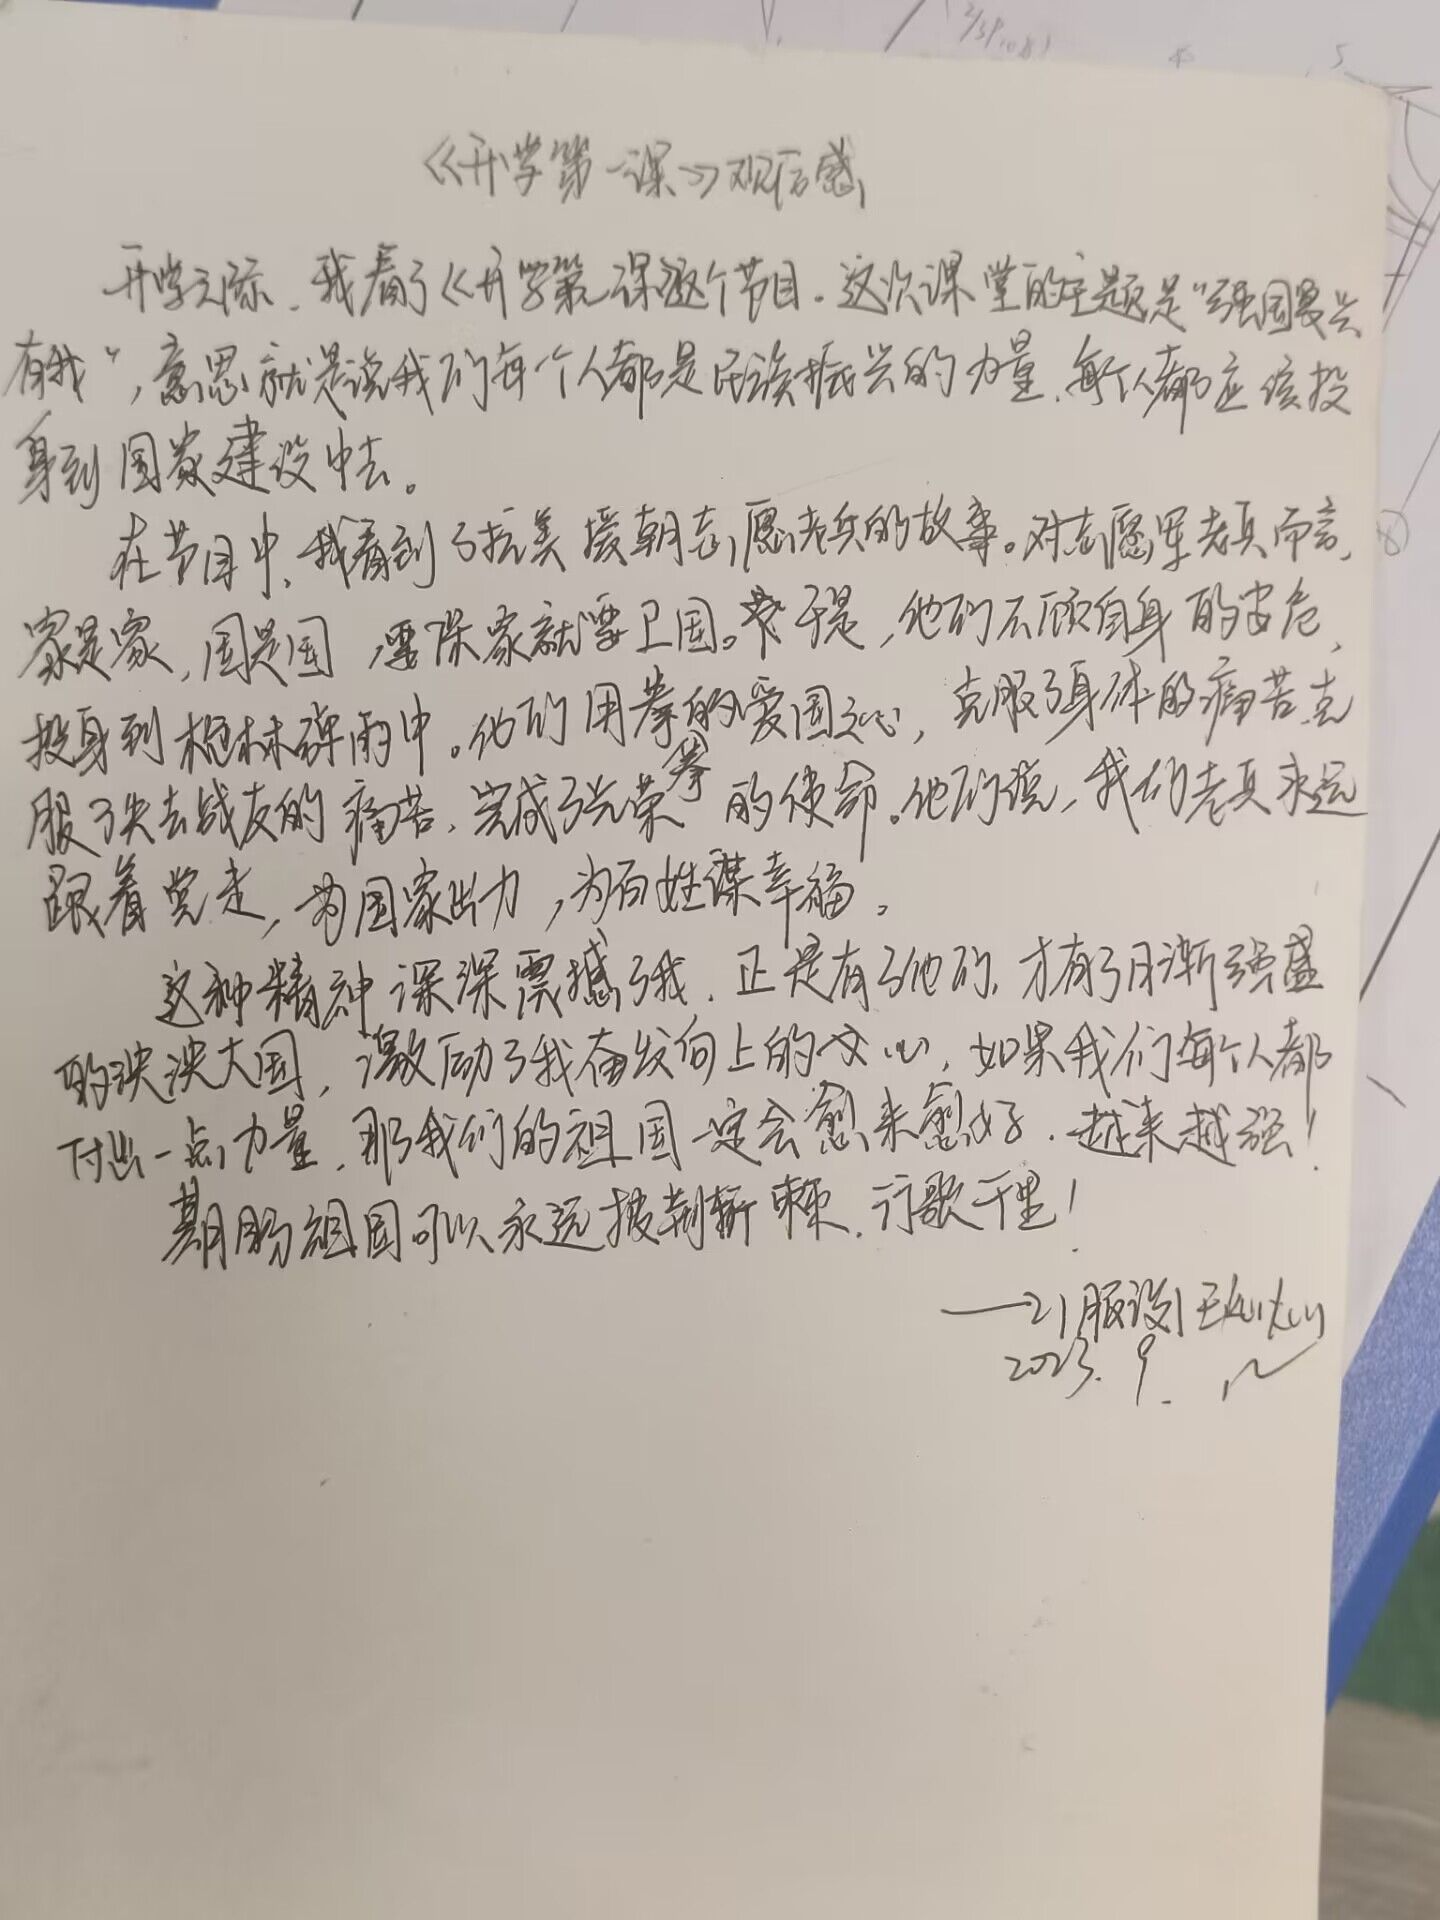 《开学第一课》观后感
开学之际，我看了《开学第一课》这个节目。这次课堂的主题是“强国复兴
有我”，意思就是说我们每个人都是民族振兴的力量，每个人都应该投
身到国家建设中去。
在节目中，我看到了抗美援朝志愿老兵的故事。对志愿军老兵而言，
家是家，国是国，要保家就要卫国。于是，他们不顾自身的安危，
投身到枪林弹雨中。他们用拳拳的爱国之心，克服了身体的痛苦，克
服了失去战友的痛苦，完成了光荣的使命。他们说，我们老兵永远
跟着党走，为国家出力，为百姓谋幸福。
这种精神深深震撼了我，正是有了他们，才有了日渐强盛
的泱泱大国，激励了我奋发向上的决心，如果我们每个人都
付出一点力量，那我们的祖国一定会愈来愈好，越来越强！
期盼祖国可以永远披荆斩棘，行歌千里！
——21服设1
2023.9.